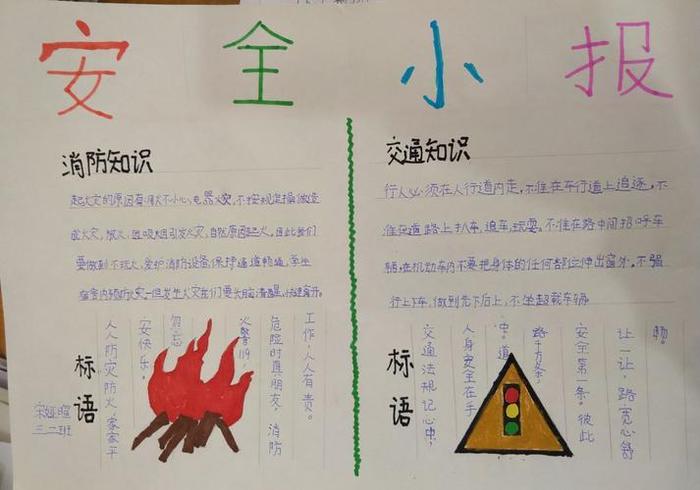 安全小报
消防知识
起火灾的原因有:用火不小心、电器火灾,不按规定操做造
成火灾,放火、吸烟引发火灾,自然原因起火。因此我们
要做到不玩火,爱护消防设备,保持通道畅通,学生
在舍内预防火灾一但发生火灾我们要头脑清醒,快速离开。
标语
人人防灾防火,家家平
安快乐。
勿忘
火警119,
危险时真朋友,消防
工作,人人有责。
宋娅暄
三二班
交通知识
行人必须在人行道内走,不准在车行道上追逐,不
准在道路上扒车,追车,玩耍。不准在路中间招呼车
辆,在机动车内不要把身体的任何部位伸出窗外。不强
行上下车,做到先下后上,不坐超载车辆
标语
交通法规记心中,
人身安全在手
中。道
路千万条,
安全第一条。彼此
让一让,路宽心舒
畅。